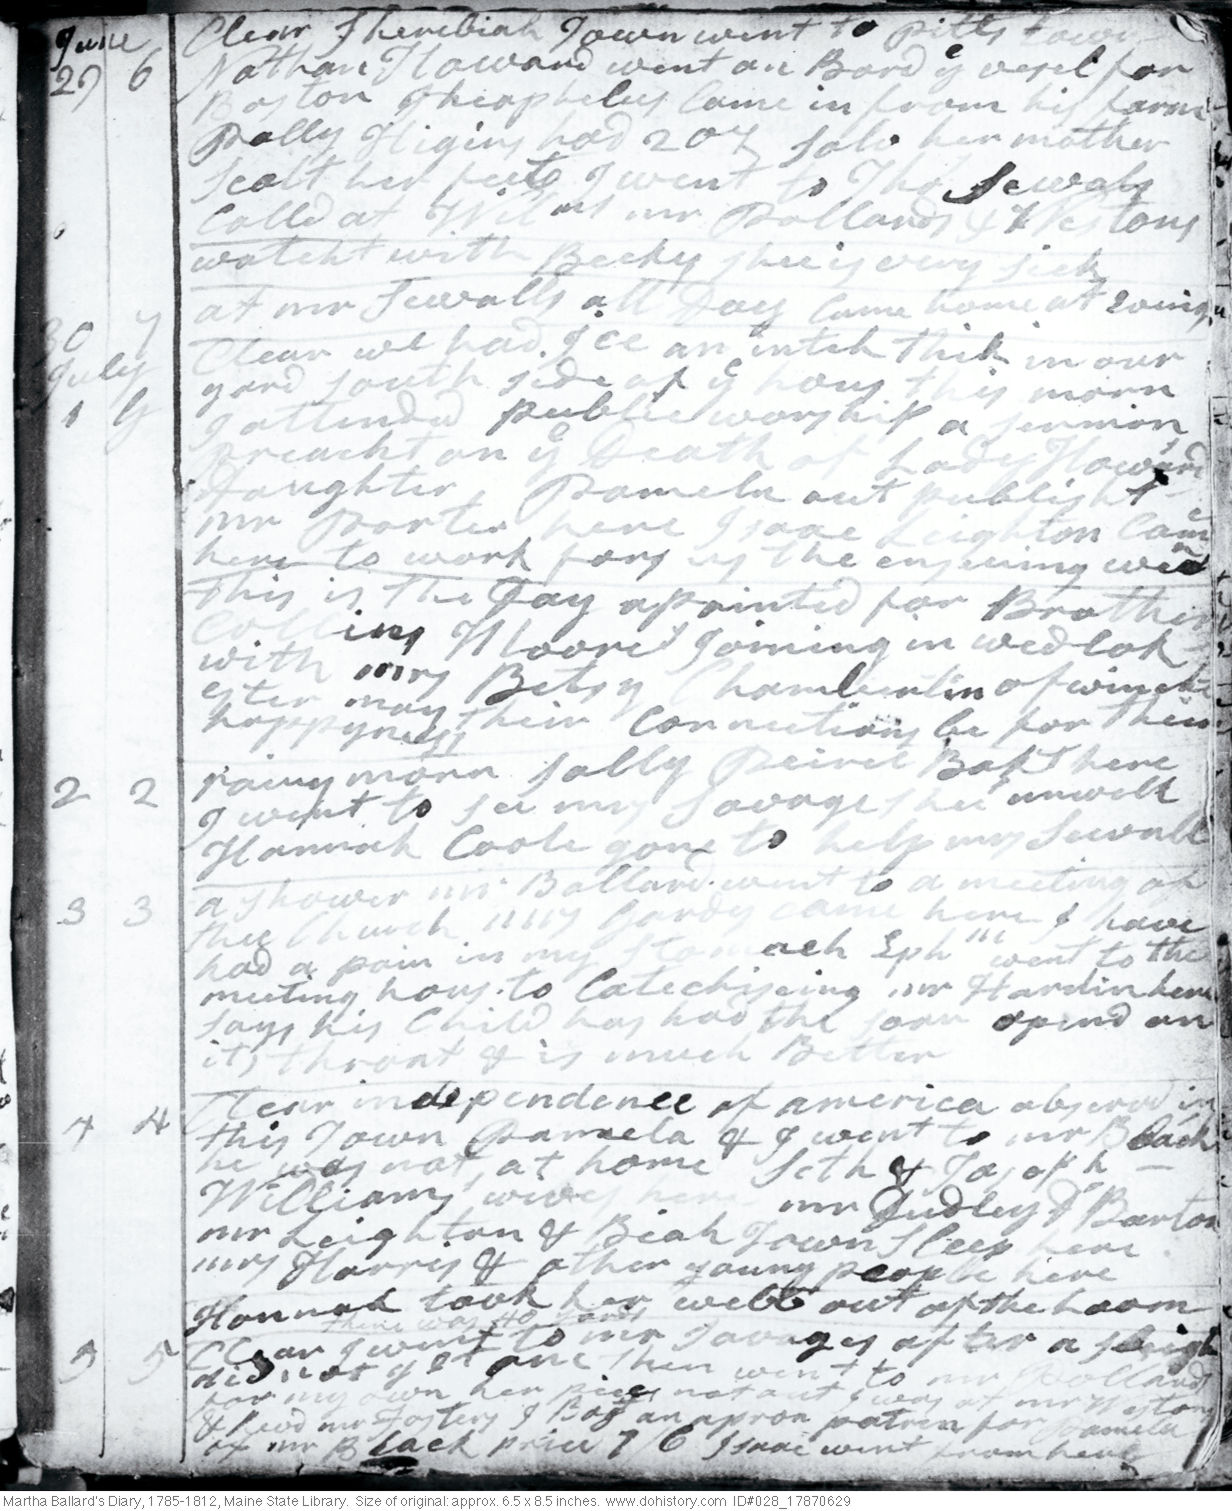 June
29 6 Clear Sherebiah Town went to Pitts town
Nathan Howard went on Bord ye vesel for
Boston Theophelus Came in from his farm
Polly Higins had 2 oz Salv her mother
scalt her feete I went to Tho Sewals
Calld at mr Pollards & Westons
watcht with Becky shee is very sick
30 7 at mr Sewalls all Day Came home at Evinng
July
1 G Clear we had Ice an intch thik in our
yard south side of ye hous this morn
I attended publick worship a sermon
preacht on ye Death of Lady Howards
Daughter Pamela out publisht
mr Porter here Isaac Leighton Came
here to work for us the ensueing
This is the Day apointed for Brother
Collins Moore's Joining in wedlok
with mrs Betsy Chamberlin of winch
ester may their Connections be for their
happyness
2 2 rainy morn Sally Peirce Bakt here
I went to see mrs Savage shee unwell
Hannah Coole gone to help mrs Sewall
3 3 a shower mr Ballard went to a meeting of
thee Church mrs came here I have
had a pain in my Stomach Ephm went to the
meeting hous to Catechiseing mr Hardin here
says his Child has had the soar opend on
its throat & is much Better
4 4 Clear independence of america observd in
this Town Pamela & I went to mr Black
he was not at home Seth & Joseph
Williams wives here mr Dudley & Barton
mr Leighton & Biah Town Sleep here
mrs Harris & other young people here
Hannah took her webb out of the Loom
there was 40 yards
5 5 Clear I went to mr Savages after a sleigh
did not get one then went to mr Pollards
for my own her piece not out I was at mr Westons
& mr Fosters I Bot an apron patren for Pamela
of mr Black price 7/6 Isaac went from here
Martha Ballard's Diary, 1785-1812, Maine State Library. Size of original: approx. 6.5 x 8.5 inches. www.dohistory.com ID#028_17870629